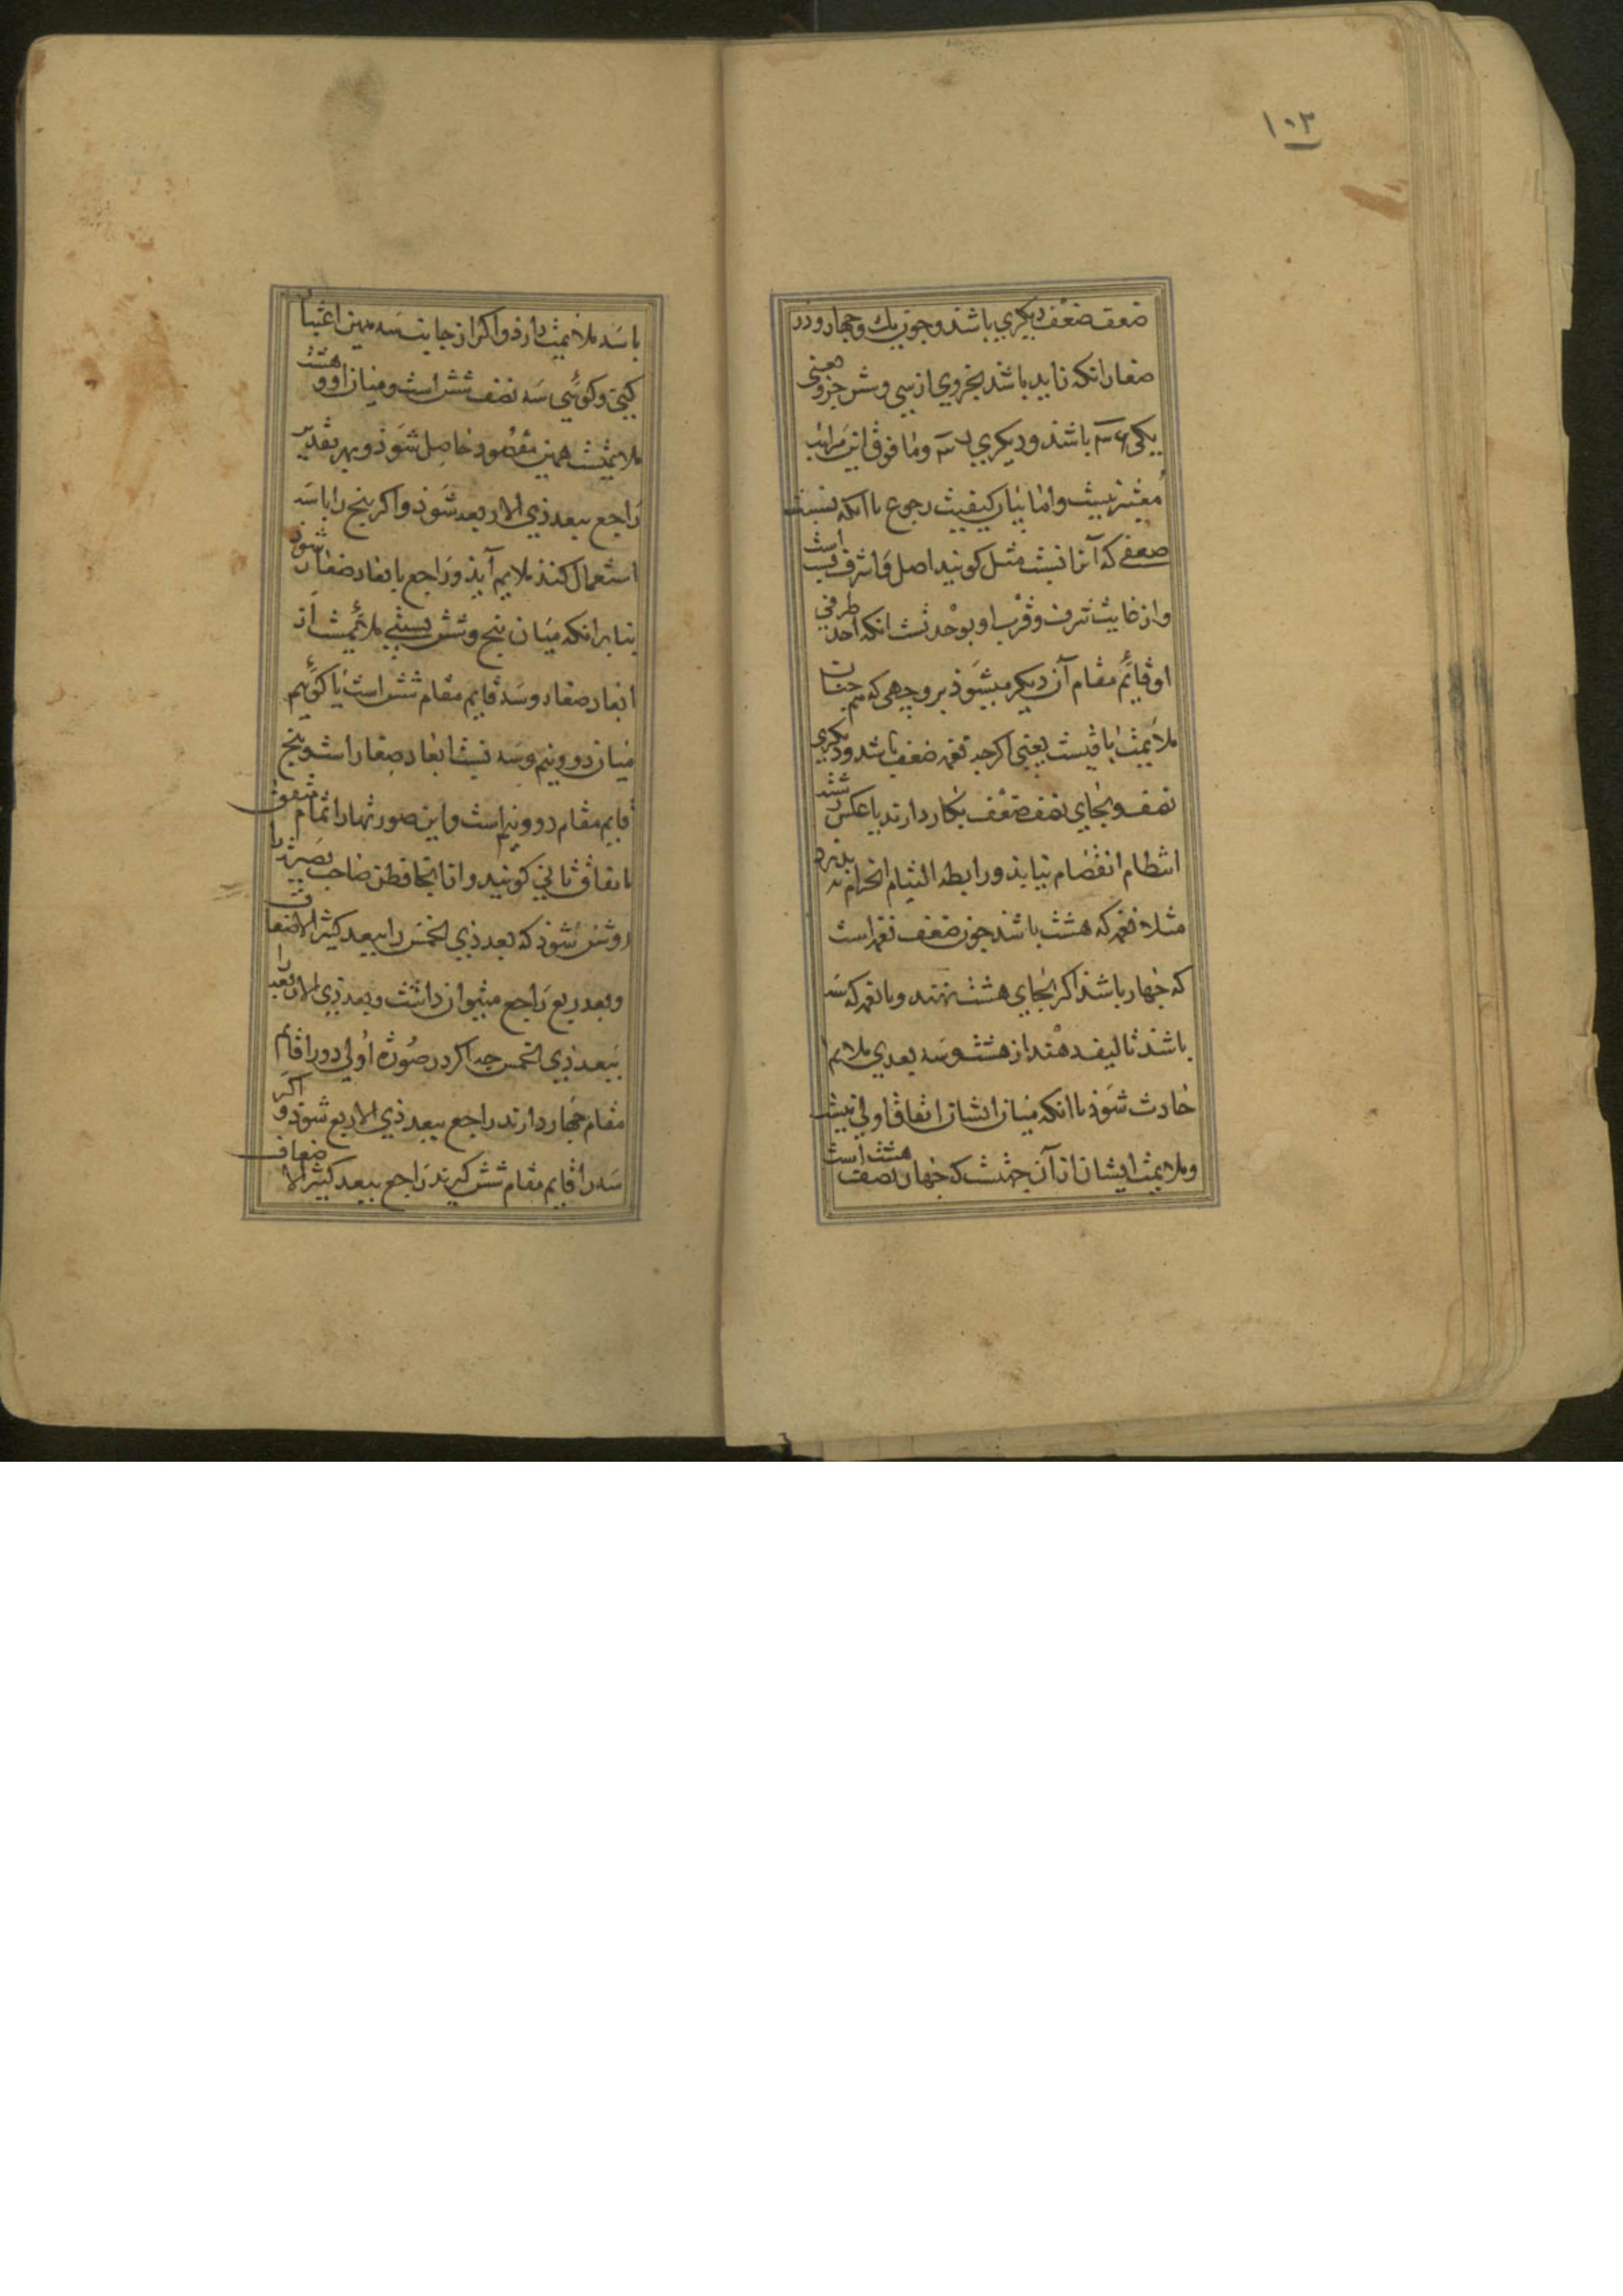 ۱۰۳
ضعف ضعف دیکری باشند و جون یك و جهار و در
صغار انکه زاید باشد بجزوی از سی و شش جزو یعنی
یکی ۳۶ باشند و دیکری ۳۵ و ما فوق این مراتب
معتبر نیست و اما بیان کیفیت رجوع با انکه نسبت
ضعفی که آنرا نسبت مثل کویند اصل و اشرف نسب است
و از غایت شرف و قرب او بوحدتست انکه احد طرفی
او قایم مقام آن دیکر میشوذ بر وجهی که هم جنان
ملایمت باقیست یعنی اکر جه نغمه ضعف باشد و دیکری
نصف و بجای نصف ضعف بکار دارند یا عکس رشته
انتظام انفصام نیابذ و رابطه التیام انخرام نپذیرد
مثلا نغمه که هشت باشد جون ضعف نغمه است
که جهار باشذ اکر بجای هشت نهند و با نغمه که سه
باشذ تالیف دهند از هشت و سه بعدی ملایم
حادث شوذ با انکه میان ایشان اتفاق اولی نیست
و ملایمت ایشان از آن جهتست که جهار نصف هشت است
با سه ملایمت دارذ و اکر از جانب سه همین اعتبار
کنی و کویی سه نصف شش است و میان او و هشت
ملایمتست همین مقصود حاصل شوذ و بهر تقدیر
راجع ببعد ذی الاربعه شوذ و اکر پنج را با سه
استعمال کنند ملایم آیذ و راجع بابعاد صغار شوذ
بنا بر انکه میان پنج و شش نسبتی ملایمست از
ابعاد صغار و سه قایم مقام شش است یا کوییم
میان دو و نیم و سه نسبت ابعاد صغار است و پنج
قایم مقام دو و نیم است و این صورتها را تمام متفق
باتفاق ثانی کویند و از اینجا فطن صاحب بصیرت را
روشن شوذ که بعد ذی الخمس را ببعد کثیر الاضعاف
و بعد ربع راجع میتوان داشت و بعد ذی الاربعه را
ببعد ذی الخمس جه اکر در صورة اولی دو را قایم
مقام جهار دارند راجع ببعد ذی الاربع شوذ و اکر
سه را قایم مقام شش کیرند راجع ببعد کثیر الاضعاف